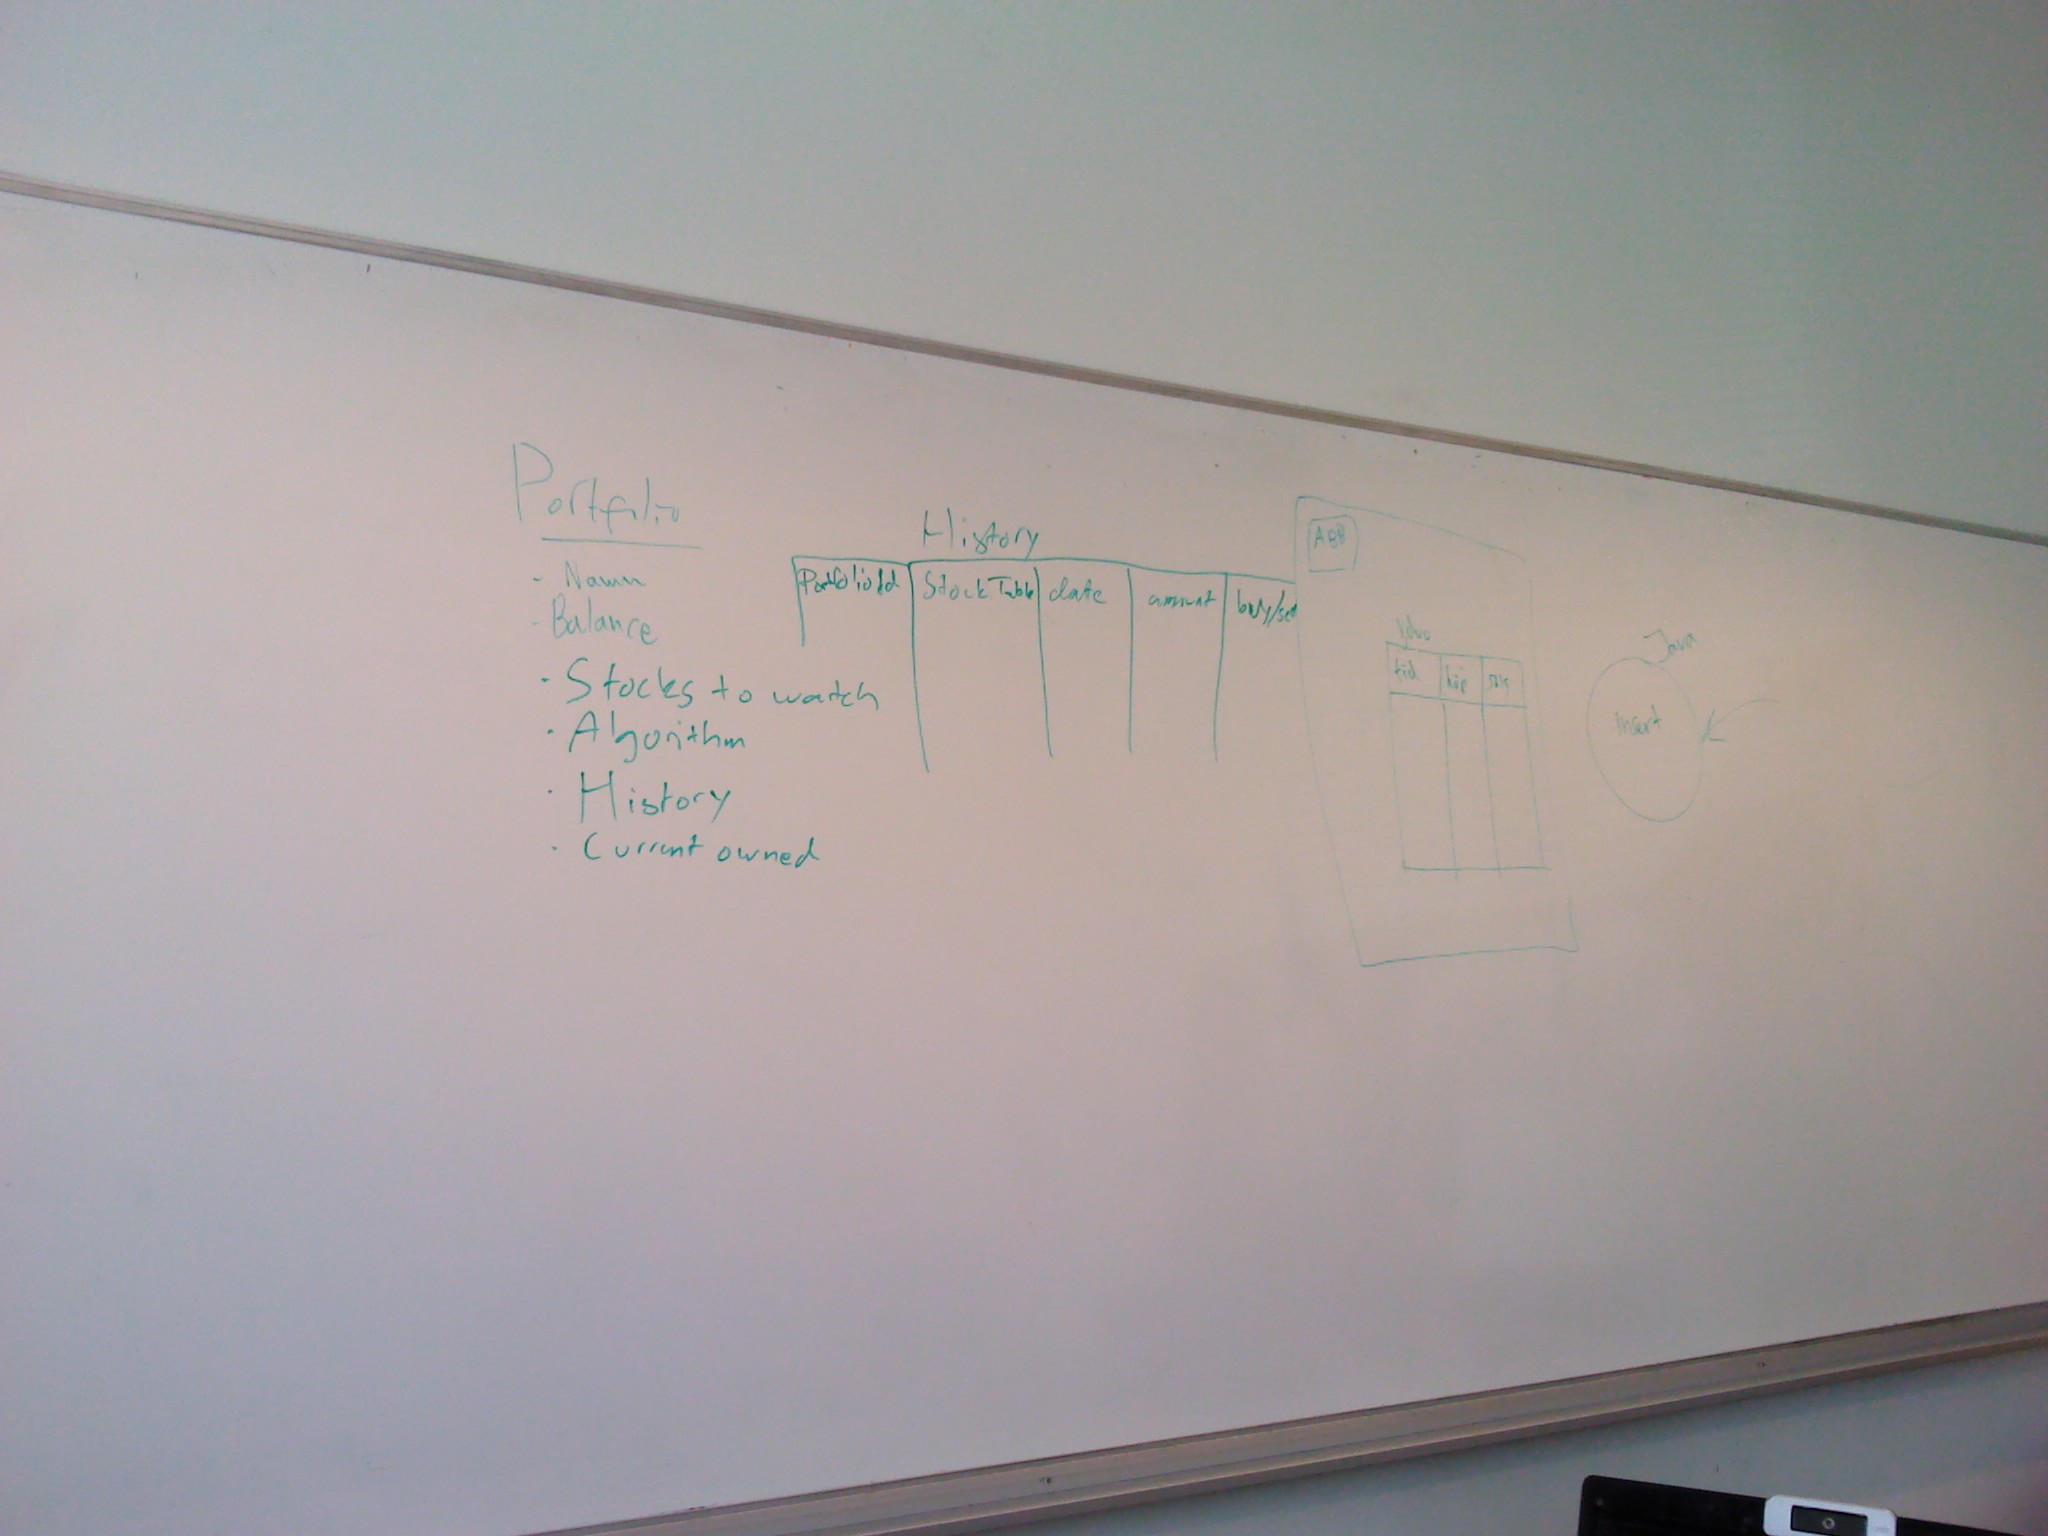 Portfolio
- Namn
- Balance
· Stocks to watch
· Algorithm
· History
· Current owned
History
PortfolioId StockTable date amount buy/sell
ABB
Volvo
tid köp sälj
Java
insert